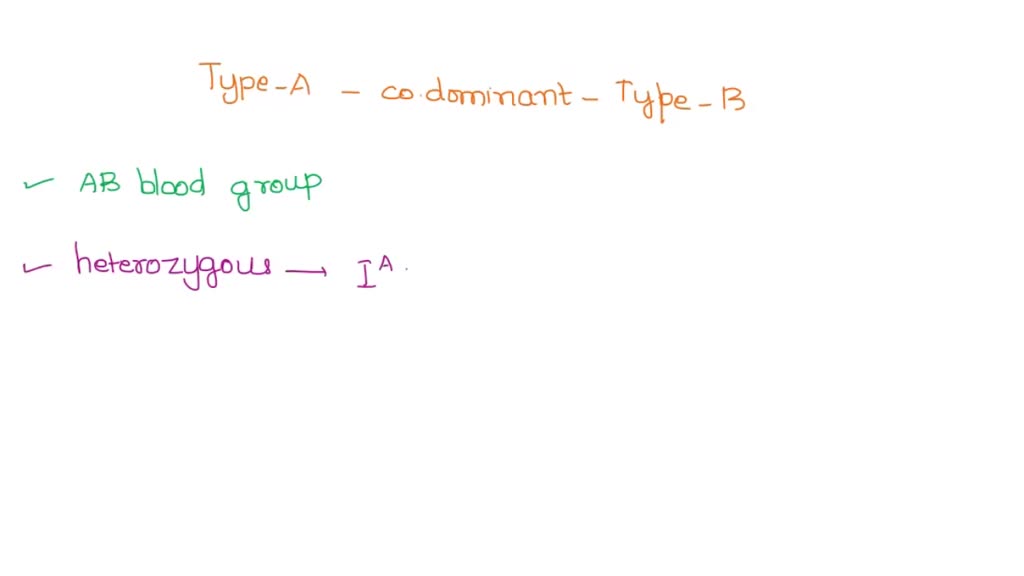 Type-A - co.dominant - Type-B
✓ AB blood group
✓ heterozygous → I^A .